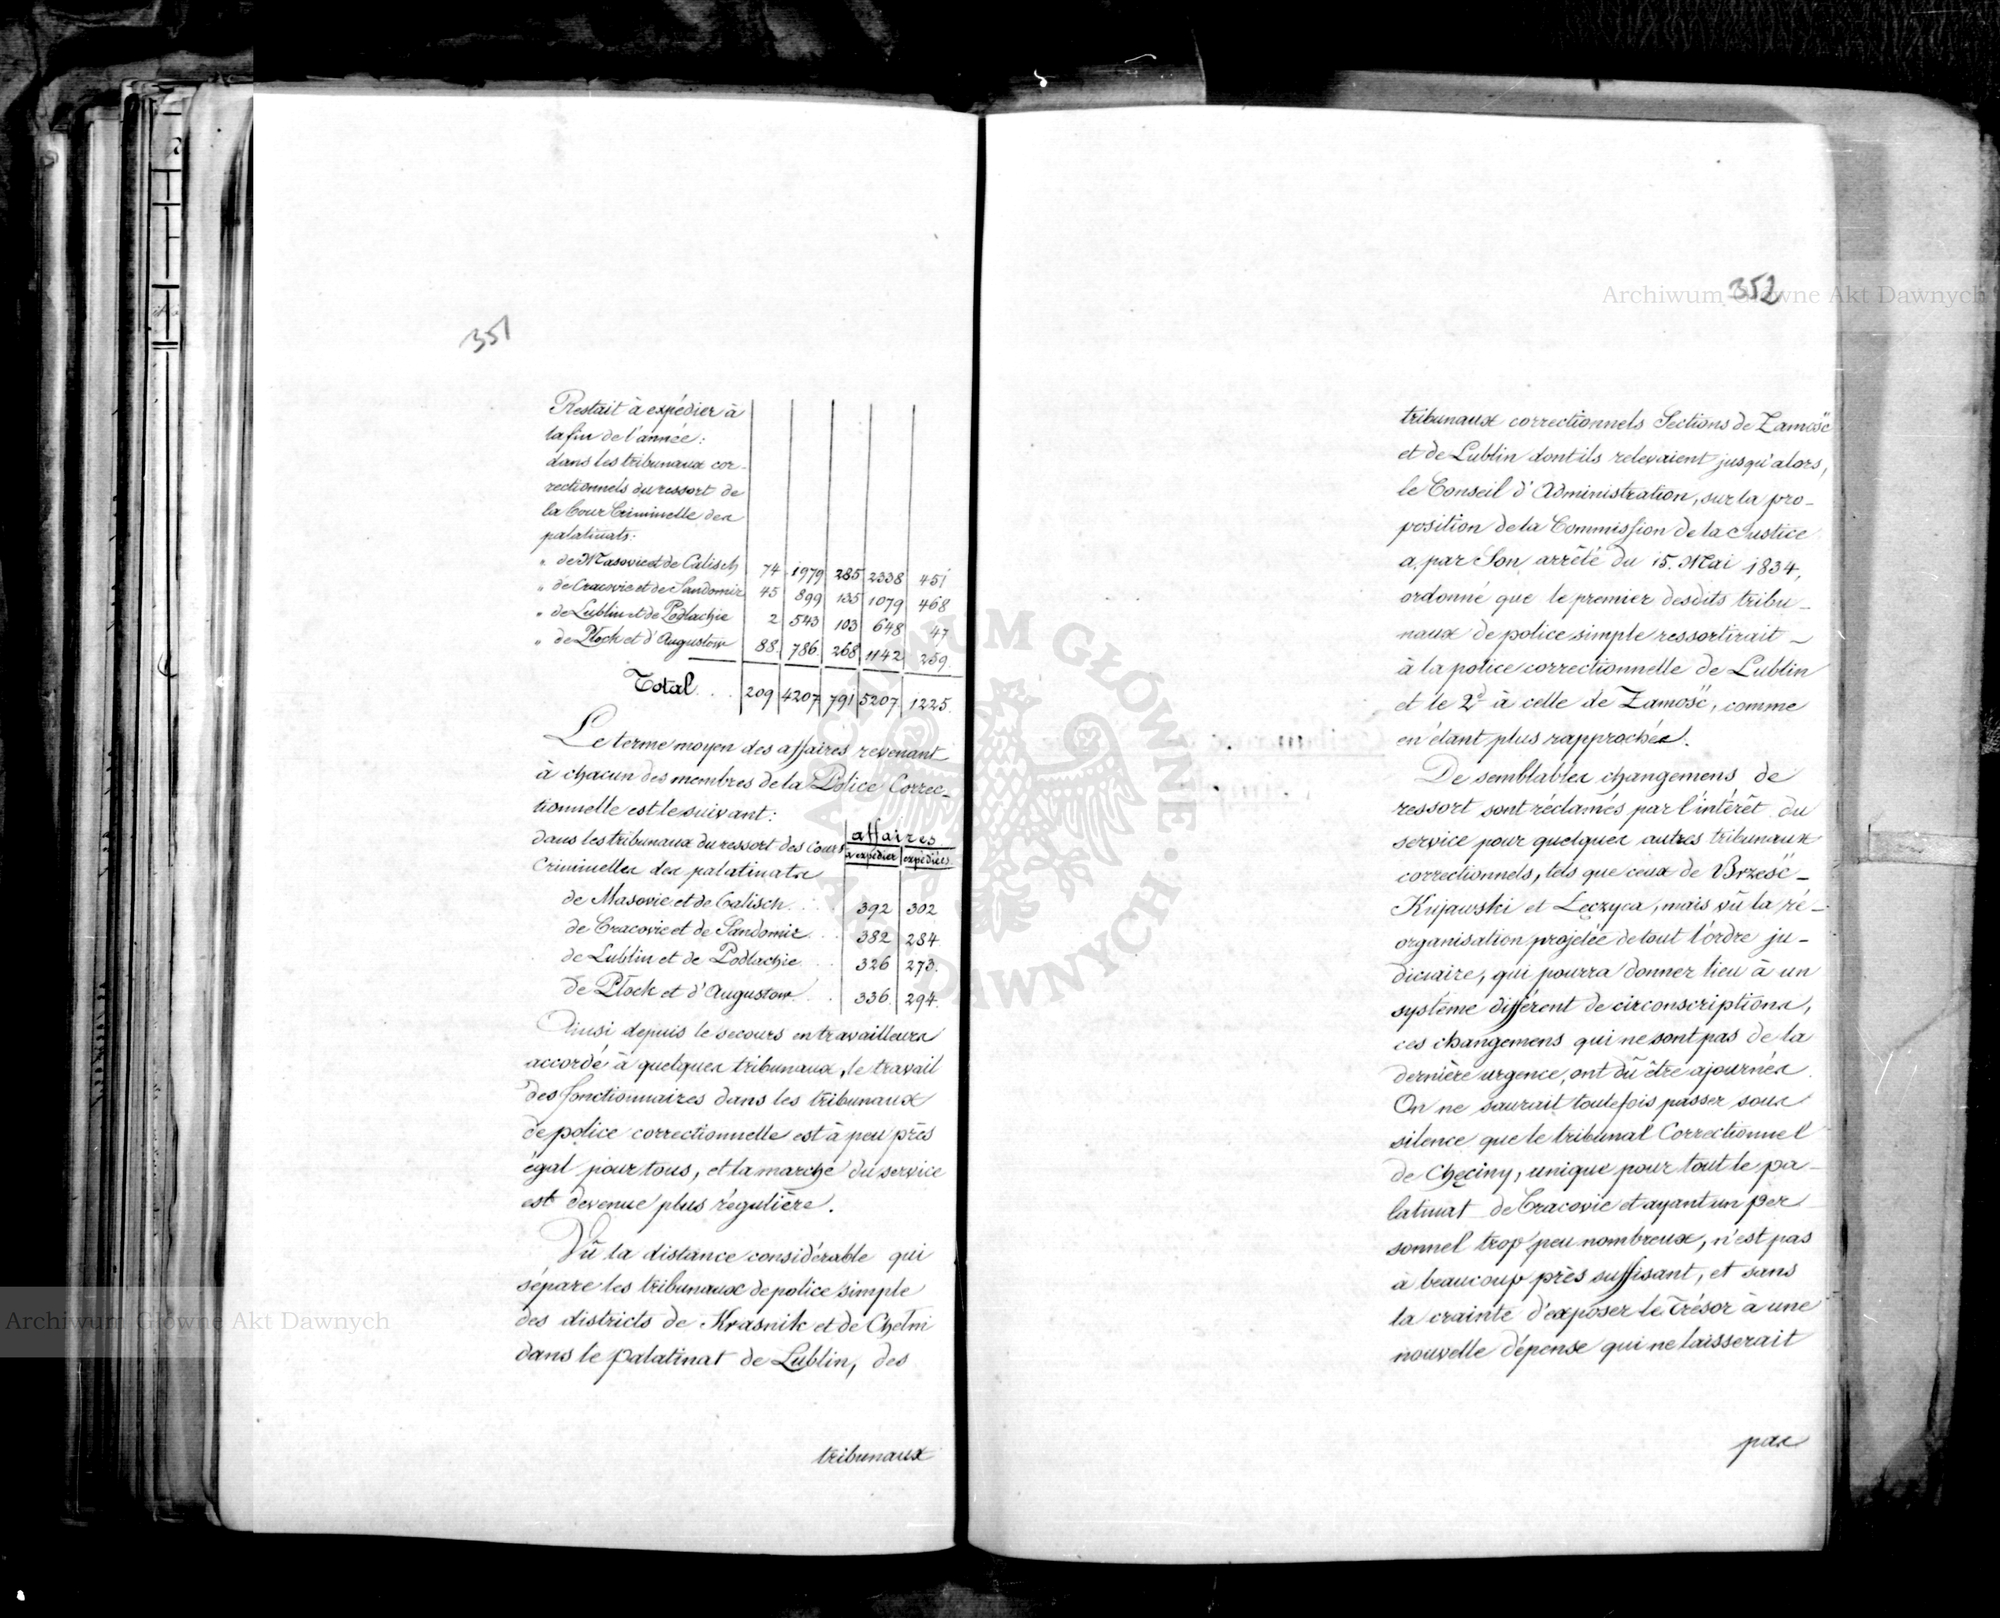 351
Restait à expédier à
la fin de l'année:
dans les tribunaux cor-
rectionnels du ressort de
la Cour Criminelle des
palatinats:
" de Masovie et de Calisch 74 1979 285 2338 451
" de Cracovie et de Sandomir 45 899 135 1079 468
" de Lublin et de Podlachie 2 543 103 648 47
" de Płock et d'Augustow 88 786 268 1142 259
Total . . 209 4207 791 5207 1225.
Le terme moyen des affaires revenant
à chacun des membres de la Police Correc-
tionnelle est le suivant:
dans les tribunaux du ressort des Cours affaires
Criminelles des palatinats à expédier expédiées
de Masovie et de Calisch . . . 392 302
de Cracovie et de Sandomir . . 382 284
de Lublin et de Podlachie . . 326 273.
de Płock et d'Augustow . . 336 294.
Ainsi depuis le secours en travailleurs
accordé à quelques tribunaux, le travail
des fonctionnaires dans les tribunaux
de police correctionnelle est à peu près
égal pour tous, et la marche du service
est devenue plus régulière.
Vû la distance considérable qui
sépare les tribunaux de police simple
des districts de Krasnik et de Chełm
dans le Palatinat de Lublin, des
tribunaux
352
tribunaux correctionnels Sections de Zamość
et de Lublin dont ils relevaient jusqu'alors,
le Conseil d'Administration, sur la pro-
position de la Commission de la Justice
a, par Son arrêté du 15. Mai 1834,
ordonné que le premier desdits tribu-
naux de police simple ressortirait -
à la police correctionnelle de Lublin
et le 2d à celle de Zamość, comme
en étant plus rapprochés.
De semblables changemens de
ressort sont réclamés par l'intérêt du
service pour quelques autres tribunaux
correctionnels, tels que ceux de Brześć-
Kujawski et Łęczyca, mais vû la ré-
organisation projetée de tout l'ordre ju-
diciaire, qui pourra donner lieu à un
système différent de circonscriptions,
ces changemens qui ne sont pas de la
dernière urgence, ont dû être ajournés.
On ne saurait toutefois passer sous
silence que le tribunal Correctionnel
de Chęciny, unique pour tout le pa-
latinat de Cracovie et ayant un per-
sonnel trop peu nombreux, n'est pas
à beaucoup près suffisant, et sans
la crainte d'exposer le Trésor à une
nouvelle dépense qui ne laisserait
pas
Archiwum Główne Akt Dawnych
Archiwum Główne Akt Dawnych
ARCHIWUM GŁÓWNE AKT DAWNYCH